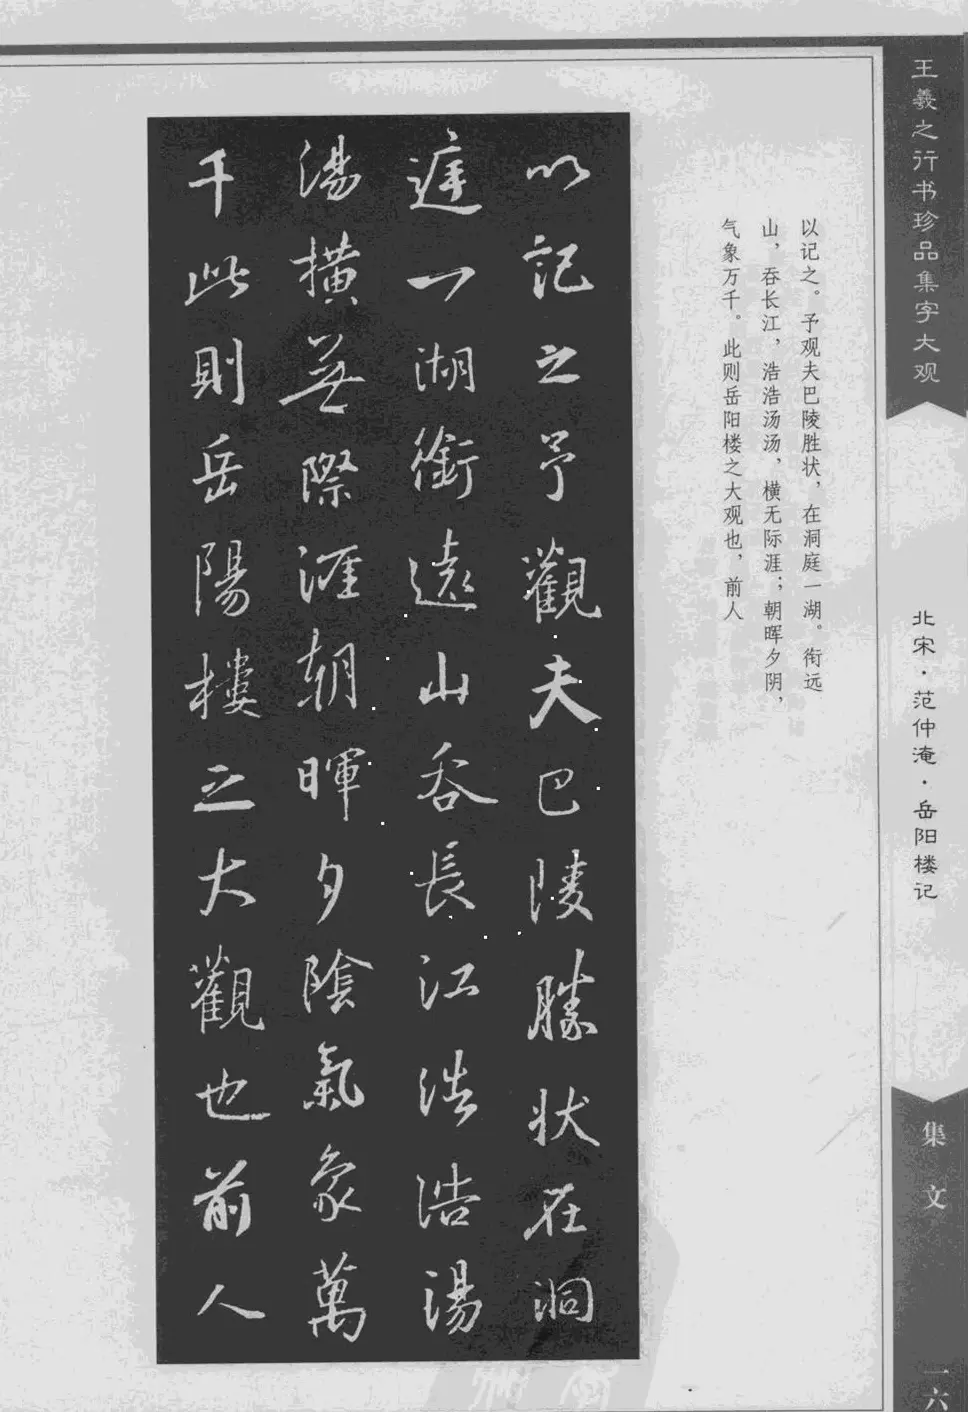 王羲之行书珍品集字大观
北宋·范仲淹·岳阳楼记
集文
一六
以记之。予观夫巴陵胜状，在洞庭一湖。衔远
山，吞长江，浩浩汤汤，横无际涯；朝晖夕阴，
气象万千。此则岳阳楼之大观也，前人
以記之予觀夫巴陵勝状在洞
庭一湖銜遠山吞長江浩浩湯
湯橫無際涯朝暉夕陰氣象萬
千此則岳陽樓之大觀也前人